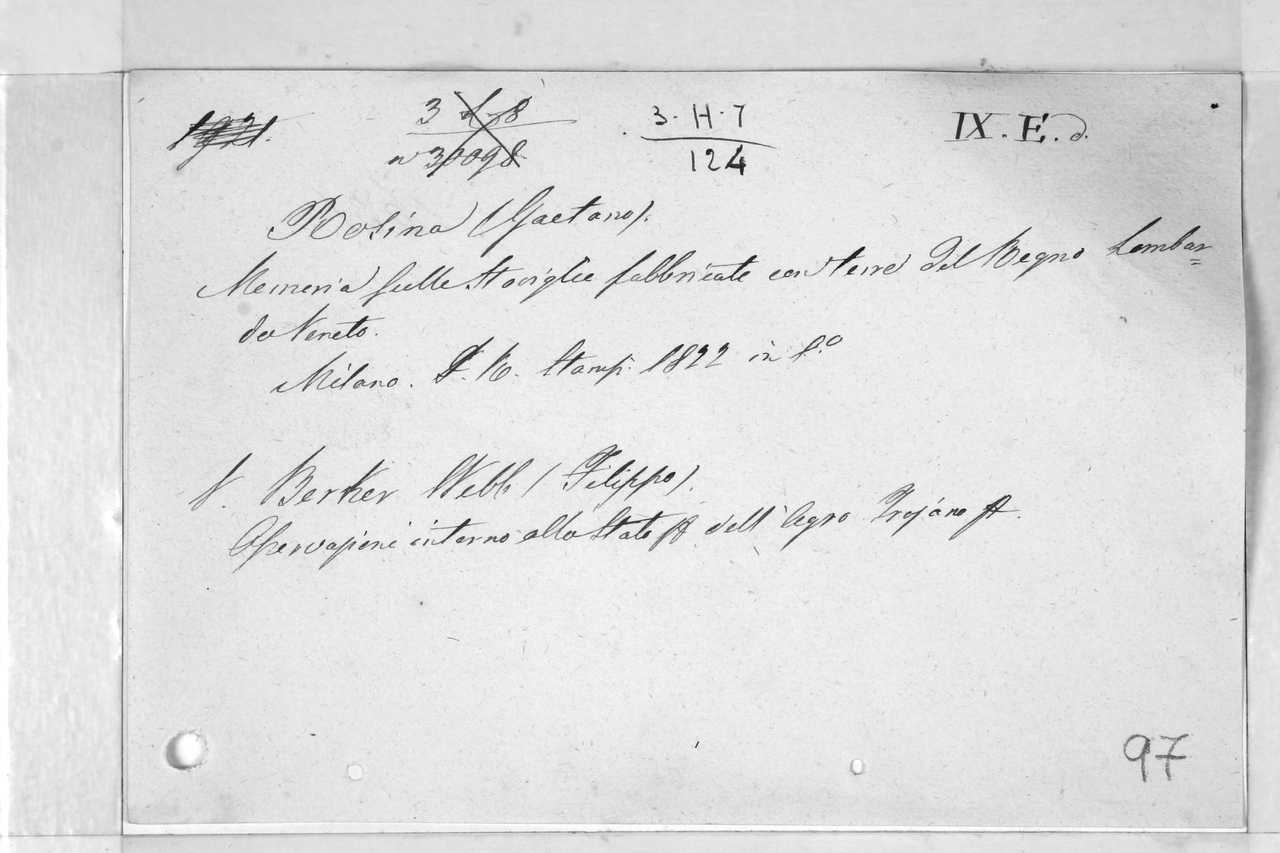 3. H. 7
124
IX. E. d.
Rosina (Gaetano).
Memoria sulle Stoviglie fabbricate con terre del Regno Lombar=
do Veneto.
Milano. I. R. Stamp. 1822 in 8.o
V. Berker Webb (Filippo).
Osservazioni intorno allo Stato dell' Agro Trojano
97